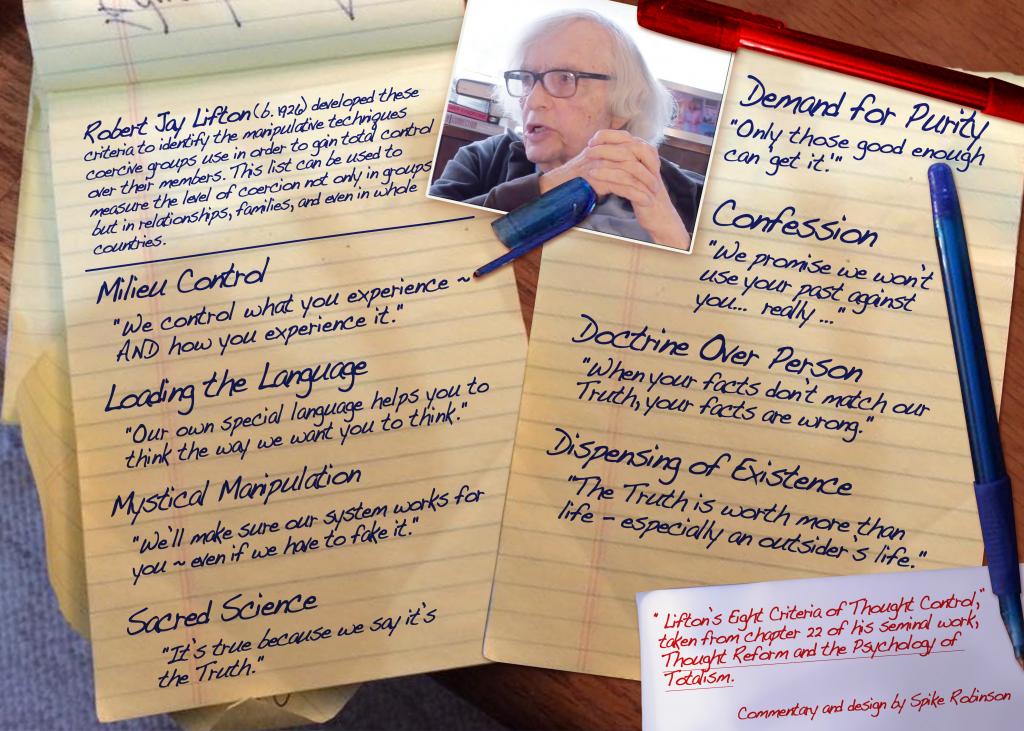 Robert Jay Lifton (b. 1926) developed these
criteria to identify the manipulative techniques
coercive groups use in order to gain total control
over their members. This list can be used to
measure the level of coercion not only in groups
but in relationships, families, and even in whole
countries.
Milieu Control
"We control what you experience ~
AND how you experience it."
Loading the Language
"Our own special language helps you to
think the way we want you to think."
Mystical Manipulation
"We'll make sure our system works for
you ~ even if we have to fake it."
Sacred Science
"It's true because we say it's
the Truth."
Demand for Purity
"Only those good enough
can 'get it.'"
Confession
"We promise we won't
use your past against
you... really ..."
Doctrine Over Person
"When your facts don't match our
Truth, your facts are wrong."
Dispensing of Existence
"The Truth is worth more than
life - especially an outsider s life."
"Lifton's Eight Criteria of Thought Control,"
taken from chapter 22 of his seminal work,
Thought Reform and the Psychology of
Totalism.
Commentary and design by Spike Robinson